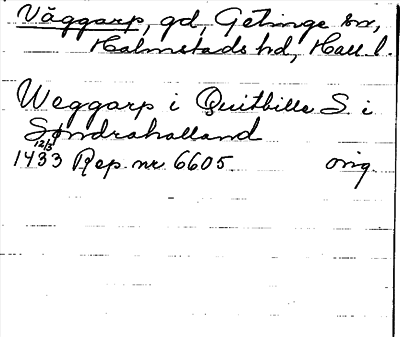 Väggarp, gd, Getinge sn,
Halmstads hd, Hall. l.
Weggarp i Quitbille S. i
Søndrahalland
12/3
1433 Rep. nr 6605. orig.